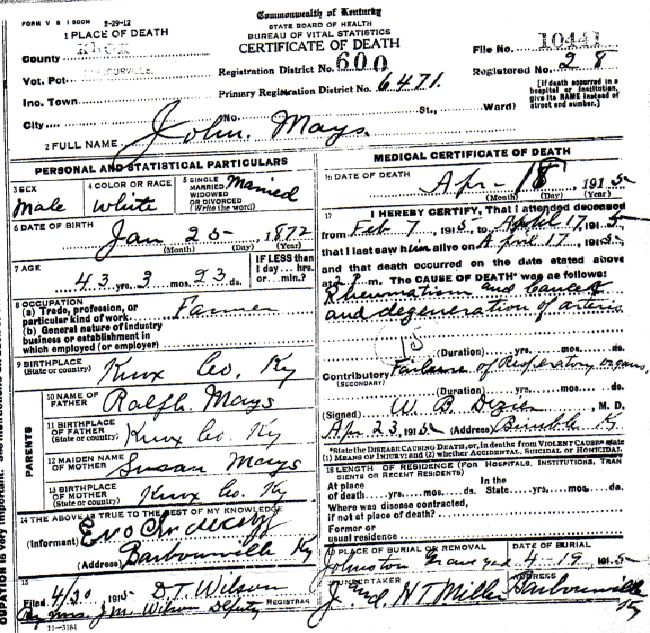 FORM V S 1 500M 2-29-12
Commonwealth of Kentucky
STATE BOARD OF HEALTH
BUREAU OF VITAL STATISTICS
CERTIFICATE OF DEATH
1 PLACE OF DEATH
County Knox
Vot. Pct
Inc. Town
City No. St., Ward)
Registration District No. 600
Primary Registration District No. 6471.
File No. 10441
Registered No. 28
[If death occurred in a hospital or institution, give its NAME instead of street and number.]
2 FULL NAME John. Mays.
PERSONAL AND STATISTICAL PARTICULARS
3 SEX Male
4 COLOR OR RACE White
5 SINGLE MARRIED, WIDOWED OR DIVORCED (Write the word) Married
6 DATE OF BIRTH Jan 25 1872
(Month) (Day) (Year)
7 AGE 43 yrs. 3 mos. 23 ds.
IF LESS than 1 day...hrs. or...min.?
8 OCCUPATION
(a) Trade, profession, or particular kind of work Farmer
(b) General nature of industry business or establishment in which employed (or employer)
9 BIRTHPLACE (State or country) Knox Co. Ky
PARENTS
10 NAME OF FATHER Ralph Mays
11 BIRTHPLACE OF FATHER (State or country) Knox Co Ky
12 MAIDEN NAME OF MOTHER Susan Mays
13 BIRTHPLACE OF MOTHER (State or country) Knox Co. Ky
14 THE ABOVE IS TRUE TO THE BEST OF MY KNOWLEDGE
(Informant)
(Address) Barbourville Ky
15
Filed 4/30 1915 D.T. Wilson REGISTRAR
By Mrs. J.M. Wilson Deputy
11-3184
MEDICAL CERTIFICATE OF DEATH
16 DATE OF DEATH Apr- 18, 1915
(Month) (Day) (Year)
17 I HEREBY CERTIFY, That I attended deceased
from Feb 7 1915, to April 17 1915
that I last saw him alive on April 17 1915
and that death occurred on the date stated above
at 2 P. m. The CAUSE OF DEATH* was as follows:
Rheumatism and Cancer
and degeneration of arteries
(Duration) yrs. mos. ds.
Contributory Failure of Respiratory organs,
(SECONDARY)
(Duration) yrs. mos. ds.
(Signed) W. B. M. D.
Apr 23, 1915 (Address) Ky
*State the DISEASE CAUSING DEATH, or, in deaths from VIOLENT CAUSES state (1) MEANS OF INJURY; and (2) whether ACCIDENTAL, SUICIDAL or HOMICIDAL.
18 LENGTH OF RESIDENCE (FOR HOSPITALS, INSTITUTIONS, TRANSIENTS OR RECENT RESIDENTS)
At place of death yrs. mos. ds. In the State yrs. mos. ds.
Where was disease contracted, if not at place of death?
Former or usual residence
19 PLACE OF BURIAL OR REMOVAL Johnston Graveyard
DATE OF BURIAL 4-19 1915
20 UNDERTAKER H T Miller
ADDRESS Barbourville Ky